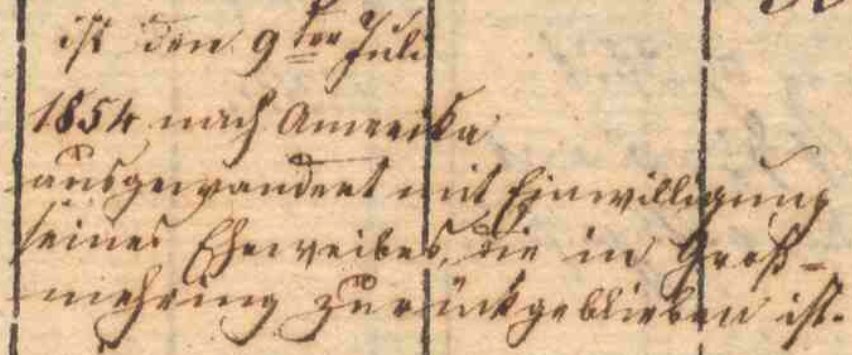 ist den 9ten Juli
1854 nach Amerika
ausgewandert mit Einwilligung
seines Eheweibes, die in Groß-
mehring zurückgeblieben ist.